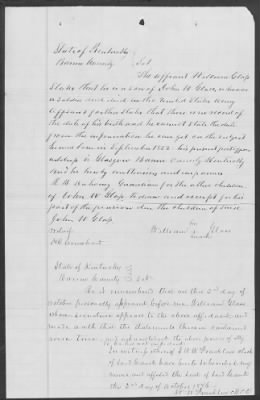 State of Kentucky
Barren County Sct
The affiant William Glass
States that he is a son of John W. Glass, who was
a Soldier and died in the United States Army
Affiant further states that there is no record of
the date of his birth and he cannot state the date
from the information he can get on the subject
he was born in September 1852 his present post office
address is Glasgow Barren County Kentucky
And he hereby constitutes and
Guardian for the other children
of John W. Glass, to draw and receipt for his
part of the pension due the children of said
John W. Glass
his
William Glass
mark
State of Kentucky
Barren County Sct
Be it remembered that on this 2nd day of
October personally appeared before me William Glass
whose signature appears to the above affidavit and
made oath that the statements therein contained
were true
In witness whereof I W. W. Franklin clerk
of said County have hereto set my
name and affixed the seal of said County
this 2nd day of October 1876
W. W. Franklin